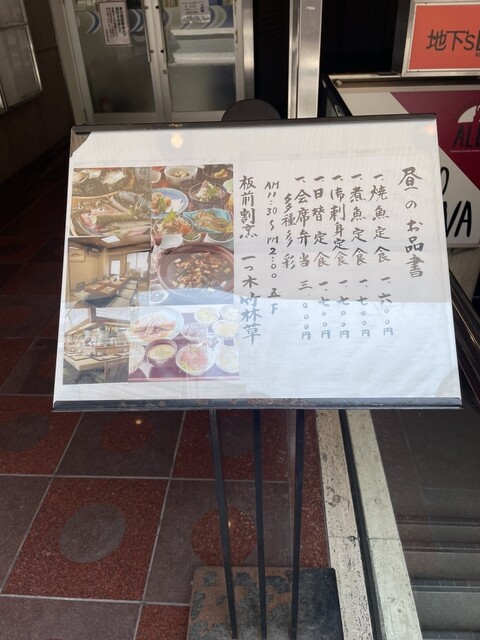 昼のお品書
一、焼魚定食 一、六〇〇円
一、煮魚定食 一、七〇〇円
一、御刺身定食 一、七〇〇円
一、日替定食 一、七〇〇円
一、会席弁当 三、〇〇〇円
多種多彩
AM11:30〜PM2:00
板前割烹 一つ木 竹林草
地下'S